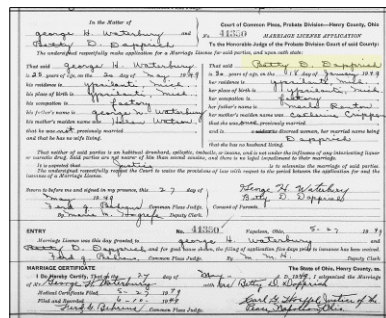 In the Matter of
George H. Waterbury and
Betty D. Dapprich
Court of Common Pleas, Probate Division—Henry County, Ohio
No. 41350 MARRIAGE LICENSE APPLICATION
To the Honorable Judge of the Probate Division of Court of said County:
The undersigned respectfully make application for a Marriage License for said parties, and upon oath state:
That said George H. Waterbury
is 20 years of age, on the 20 day of May 1949
his residence is Ypsilanti, Mich.
his place of birth is Ypsilanti, Mich.
his occupation is factory
his father's name is George M. Waterbury
his mother's maiden name was Helen Watson
that he was not previously married
and that he has no wife living.
That said Betty D. Dapprich
is 20 years of age, on the 18 day of January 1949
her residence is Ypsilanti, Mich.
her place of birth is Ypsilanti, Mich.
her occupation is factory
her father's name is Merle Renton
her mother's maiden name was Catherine
that she was previously married
and is a divorced woman, her married name being
Dapprich
that she has no husband living
Neither of said parties is an habitual drunkard, epileptic, imbecile, or insane, and is not under the influence of any intoxicating liquor
or narcotic drug. Said parties are not nearer of kin than second cousins, and there is no legal impediment to their marriage.
It is expected that Justice is to solemnize the marriage of said parties.
Sworn to before me and signed in my presence, this 27 day of
May 1949
Common Pleas Judge.
Deputy Clerk
George H. Waterbury
Betty D. Dapprich
Consent of Parents
ENTRY No. 41350 Napoleon, Ohio, 5-27 1949
Marriage License was this day granted to George H. Waterbury
and Betty D. Dapprich
Common Pleas Judge. By M. H. Deputy Clerk
MARRIAGE CERTIFICATE The State of Ohio, Henry County, ss.
I Do Hereby Certify, That on the 27 day of May A. D. 1949, I solemnized the Marriage
of Mr. George H. Waterbury with Mrs Betty D. Dapprich
Medical Certificates Filed 5-27 1949
Filed and Recorded 6-10 1949
Common Pleas Judge.
Justice of the
Peace, Napoleon, Ohio